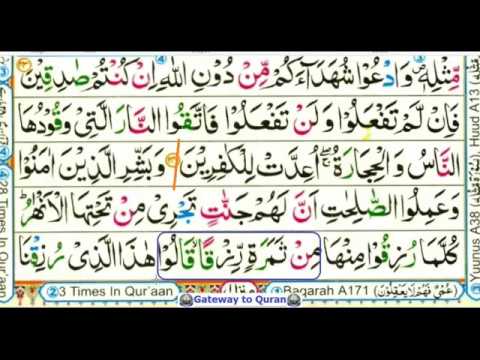 مِّثْلِهٖ ۪ وَادْعُوْا شُهَدَآءَكُمْ مِّنْ دُوْنِ اللّٰهِ اِنْ كُنْتُمْ صٰدِقِيْنَ ﴿۲۳﴾
فَاِنْ لَّمْ تَفْعَلُوْا وَلَنْ تَفْعَلُوْا فَاتَّقُوا النَّارَ الَّتِيْ وَقُوْدُهَا
النَّاسُ وَالْحِجَارَةُ ۚ اُعِدَّتْ لِلْكٰفِرِيْنَ ﴿۲۴﴾ وَبَشِّرِ الَّذِيْنَ اٰمَنُوْا
وَعَمِلُوا الصّٰلِحٰتِ اَنَّ لَهُمْ جَنّٰتٍ تَجْرِيْ مِنْ تَحْتِهَا الْاَنْهٰرُ ؕ
كُلَّمَا رُزِقُوْا مِنْهَا مِنْ ثَمَرَةٍ رِّزْقًا ۙ قَالُوْا هٰذَا الَّذِيْ رُزِقْنَا
② 3 Times In Qur'aan
Gateway to Quran
Baqarah A171 (عُمْيٌ فَهُمْ لَا يَعْقِلُوْنَ)
Huud A13
Yuunus A38
28 Times In Qur'aan